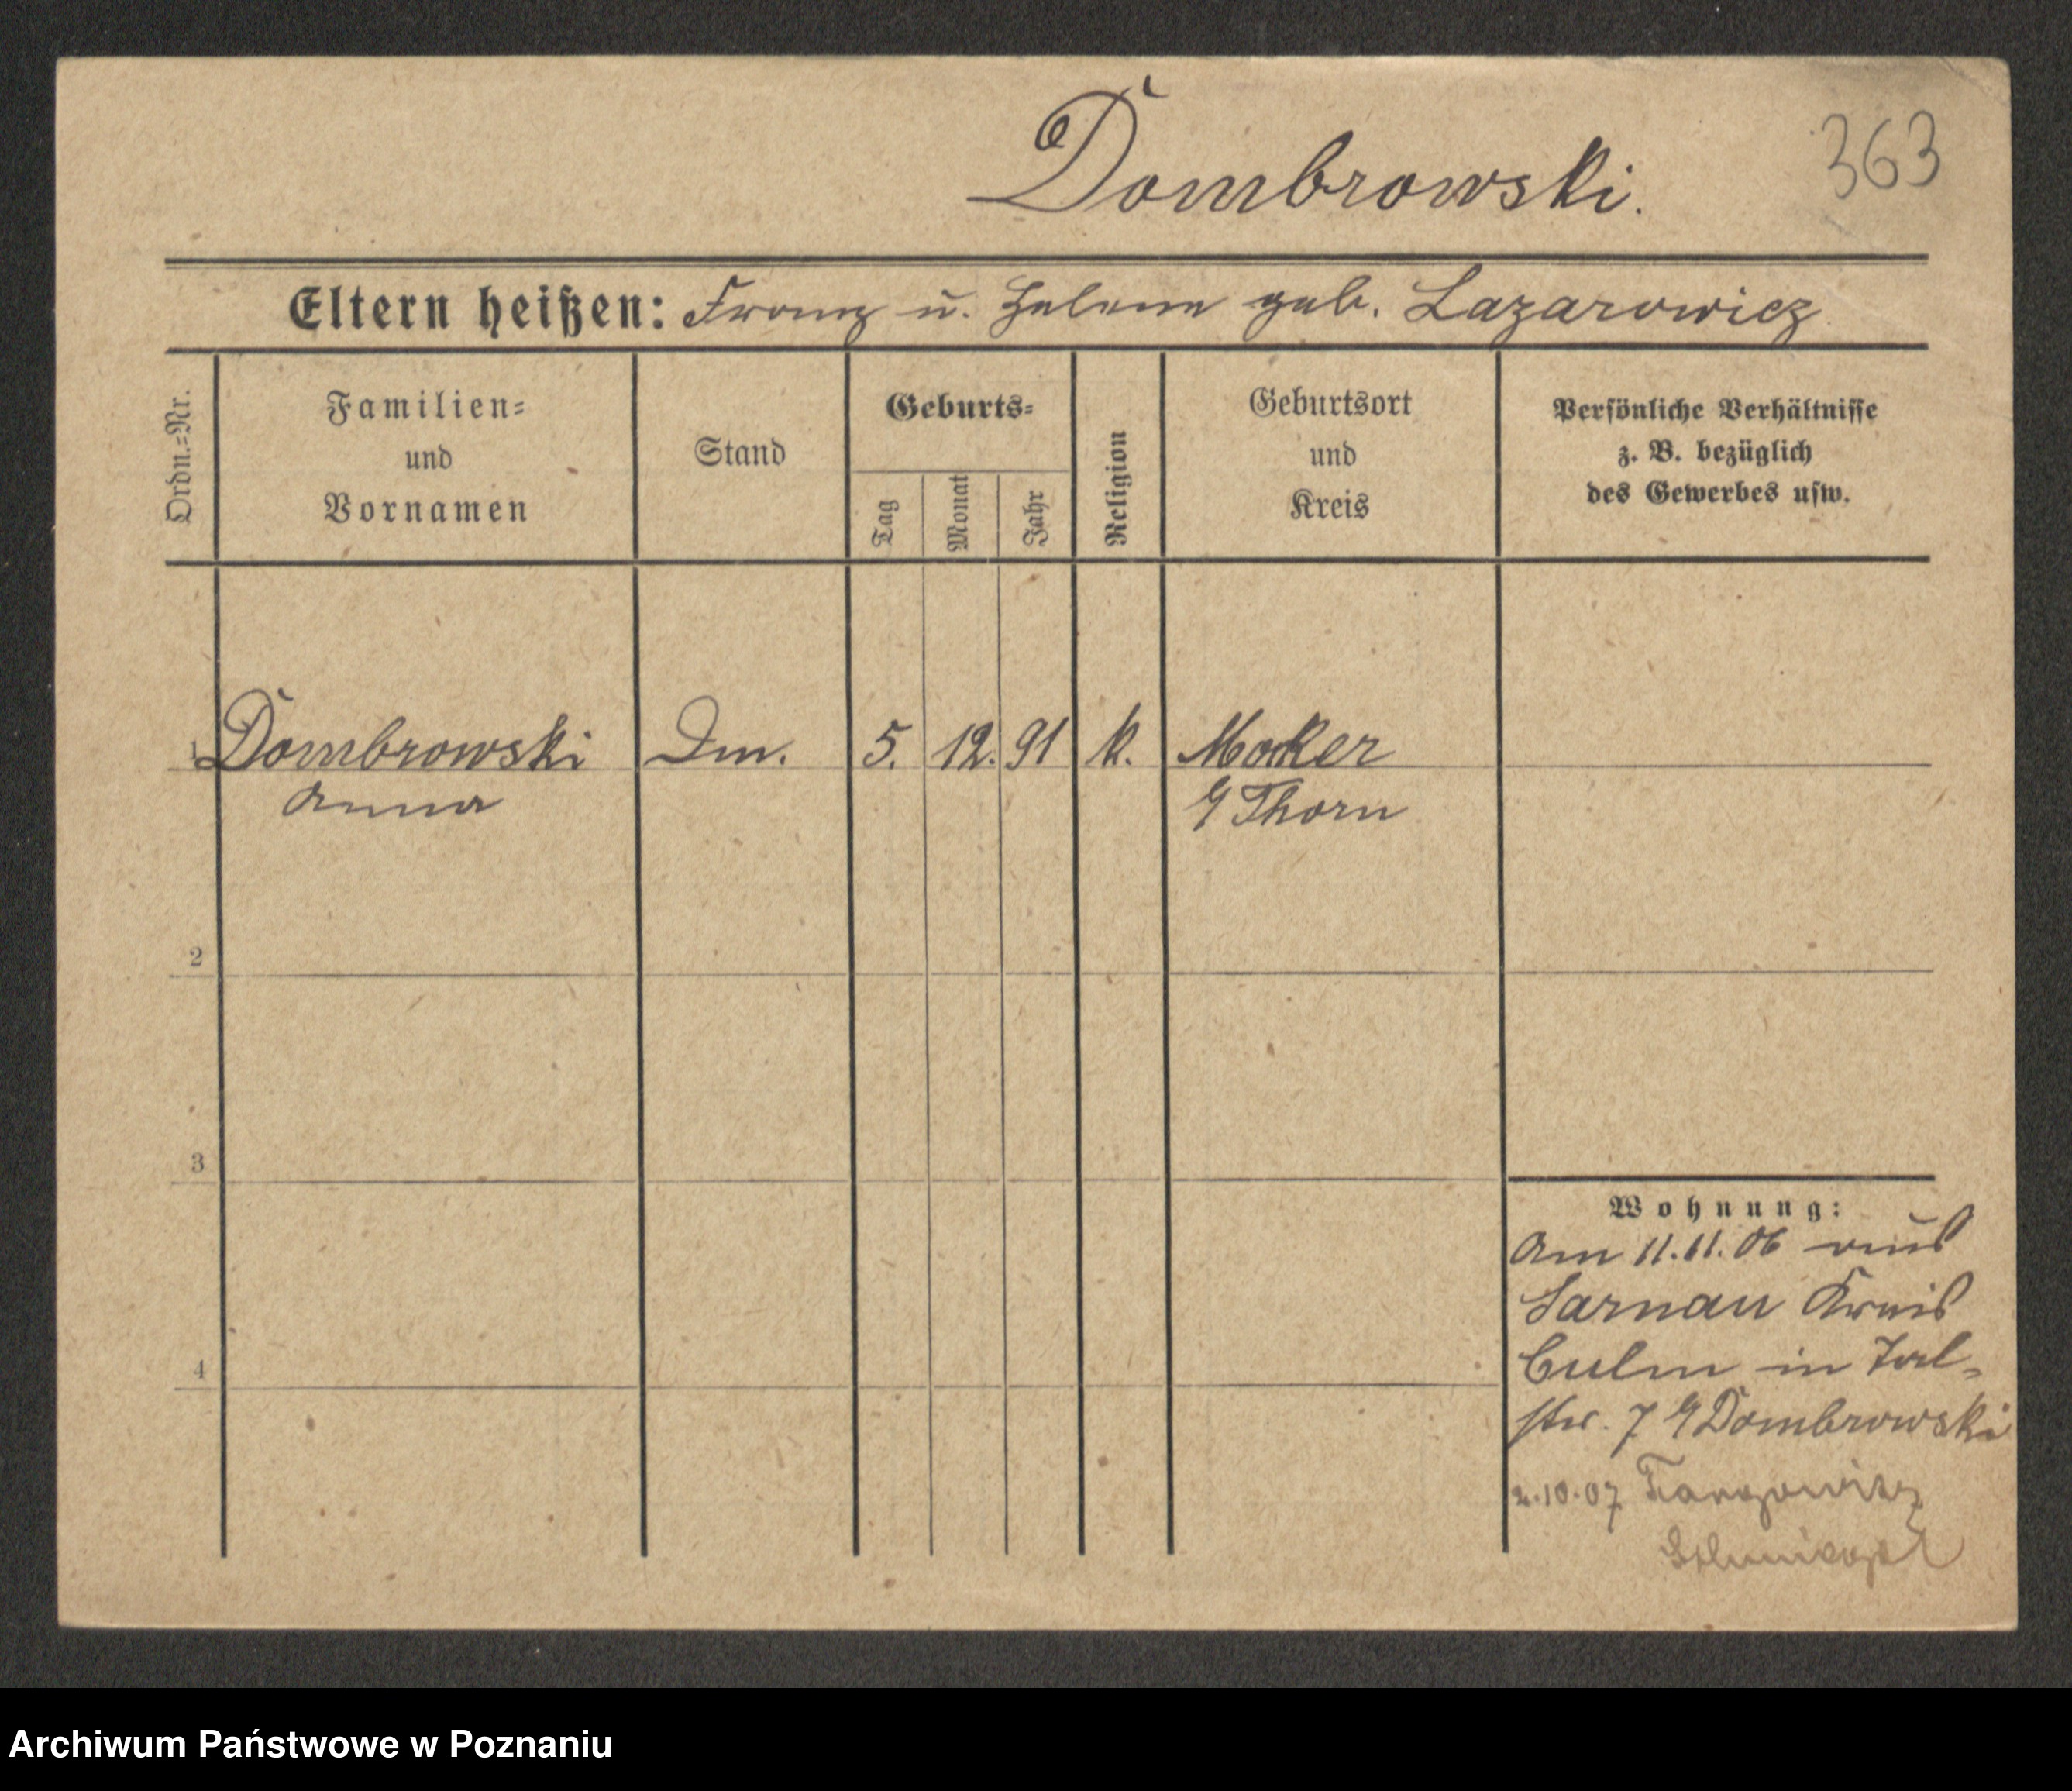 Dombrowski.
363
Eltern heißen: Franz u. Helene geb. Lazarowicz
Ordn.=Nr.
Familien=
und
Vornamen
Stand
Geburts=
Tag
Monat
Jahr
Religion
Geburtsort
und
Kreis
Persönliche Verhältnisse
z. B. bezüglich
des Gewerbes usw.
1 Dombrowski Dm. 5. 12. 91 k. Mocker
Anna Thorn
2
3
4
Wohnung:
Am 11.11.06 aus
Sarnau Kreis
Culm in Tal=
str. 7 Dombrowski
2.10.07
Archiwum Państwowe w Poznaniu